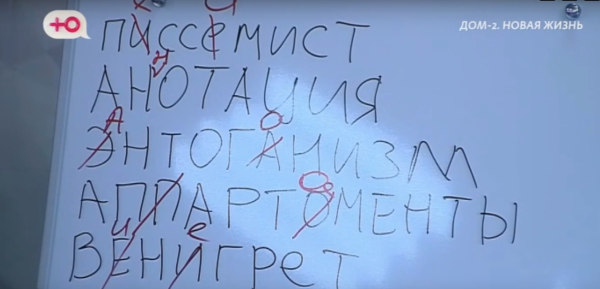 Ю
ДОМ-2. НОВАЯ ЖИЗНЬ
е и
ПИССЕМИСТ
н
АНОТАЦИЯ
А о
ЭНТОГАНИЗМ
АППАРТОМЕНТЫ
и е
ВЕНИГРЕТ